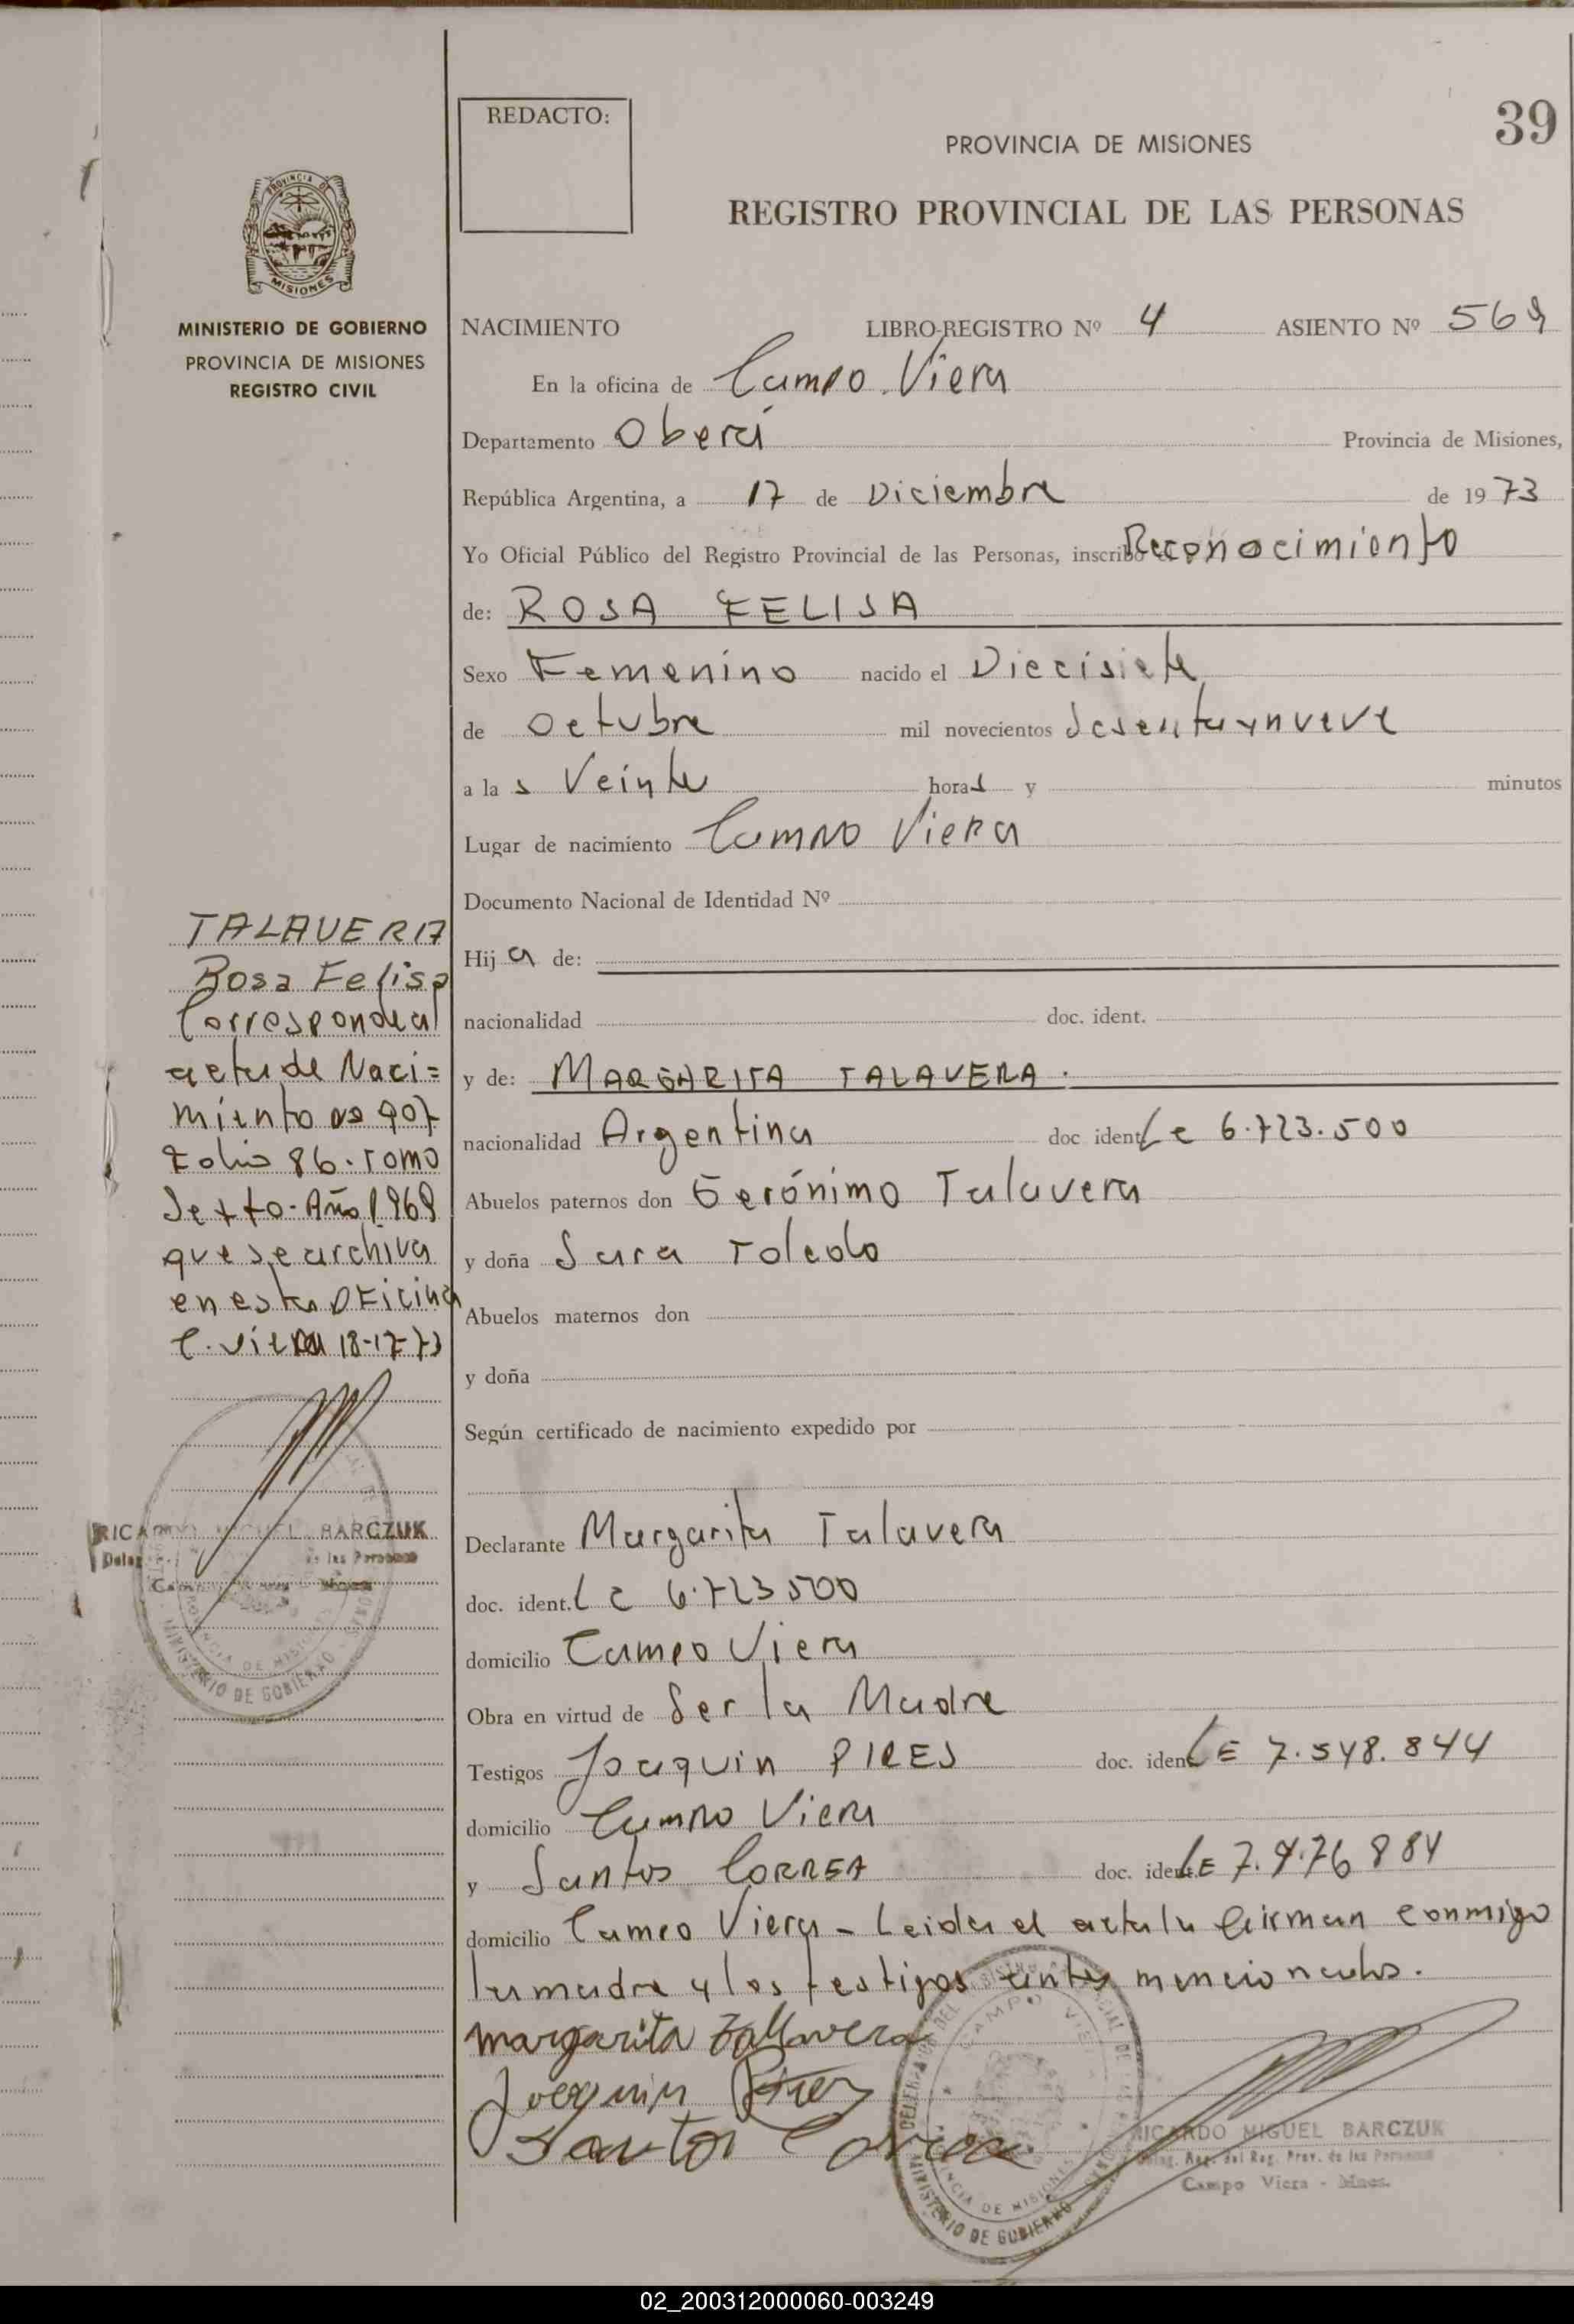 39
REDACTO:
PROVINCIA DE MISIONES
REGISTRO PROVINCIAL DE LAS PERSONAS
PROVINCIA DE
MISIONES
MINISTERIO DE GOBIERNO
PROVINCIA DE MISIONES
REGISTRO CIVIL
NACIMIENTO LIBRO-REGISTRO Nº 4 ASIENTO Nº 569
En la oficina de Campo Viera
Departamento Oberá Provincia de Misiones,
República Argentina, a 17 de Diciembre de 1973
Yo Oficial Público del Registro Provincial de las Personas, inscribo Reconocimiento
de: ROSA FELISA
Sexo Femenino nacido el Diecisiete
de Octubre mil novecientos sesenta y nueve
a la s Veinte horas y minutos
Lugar de nacimiento Campo Viera
Documento Nacional de Identidad Nº
Hija de:
nacionalidad doc. ident.
y de: MARGARITA TALAVERA.
nacionalidad Argentina doc ident LC 6.723.500
Abuelos paternos don Gerónimo Talavera
y doña Sara Toledo
Abuelos maternos don
y doña
Según certificado de nacimiento expedido por
Declarante Margarita Talavera
doc. ident. LC 6.723500
domicilio Campo Viera
Obra en virtud de Ser la Madre
Testigos Joaquin PIRES doc. ident LE 7.548.844
domicilio Campo Viera
y Santos CORREA doc. ident. LE 7.476884
domicilio Campo Viera - Leida el acta la firman conmigo
la madre y los testigos antes mencionados.
margarita Tallavera
Joaquin
Santos Correa
TALAVERA
Rosa Felisa
Corresponde al
acta de Naci=
miento no 907
Folio 86. Tomo
Sexto. Año 1969
que se archiva
en esta Oficina
C. Viera 18-12-73
RICARDO MIGUEL BARCZUK
de las Personas
MINISTERIO DE GOBIERNO
PROVINCIA DE MISIONES
CAMPO VIERA
PROVINCIA DE MISIONES
MINISTERIO DE GOBIERNO
RICARDO MIGUEL BARCZUK
Deleg. Reg. del Reg. Prov. de las Personas
Campo Viera - Mnes.
02_200312000060-003249